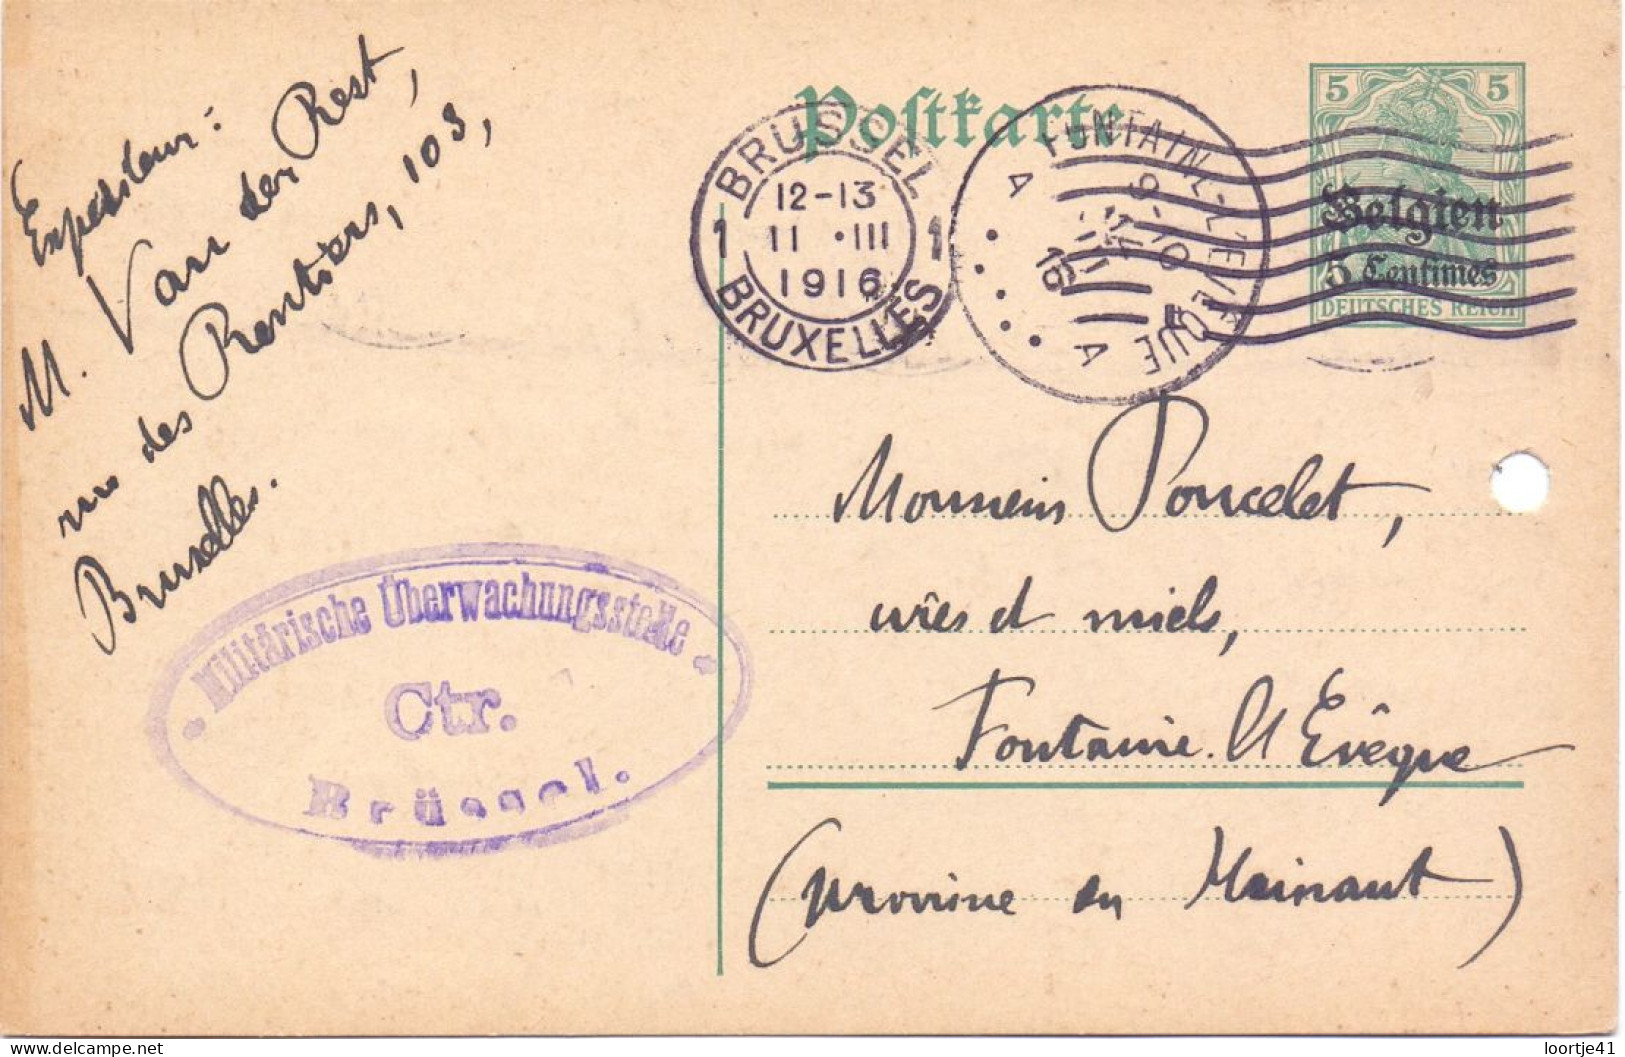 Expéditeur :
M. Van der Rest,
rue des Rentiers, 103,
Bruxelles.
Postkarte
BRUSSEL
12-13
11 · III
1916
1 1
BRUXELLES
FONTAIN-L'EVEQUE
9-10
16
A A
5 5
Belgien
5 Centimes
DEUTSCHES REICH
Militärische Überwachungsstelle
Ctr.
Brüssel.
Monsieur Poncelet,
cires et miels,
Fontaine l'Evêque
(province du Hainaut)
loortje41